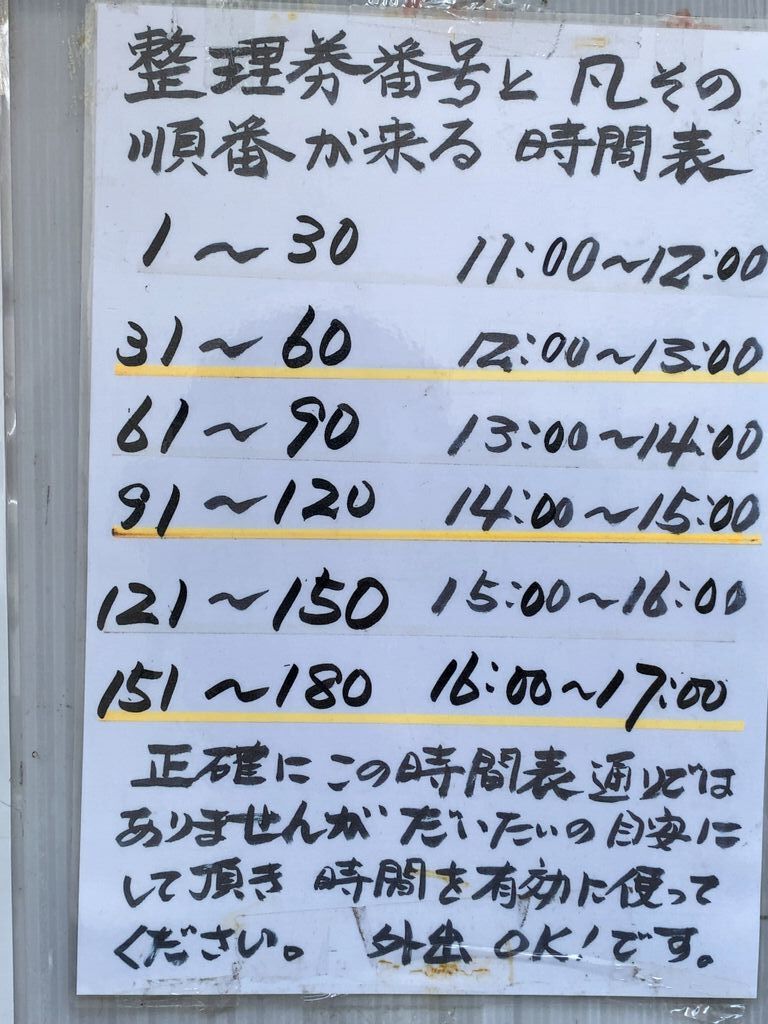 整理券番号と凡その
順番が来る時間表
1～30 11:00～12:00
31～60 12:00～13:00
61～90 13:00～14:00
91～120 14:00～15:00
121～150 15:00～16:00
151～180 16:00～17:00
正確にこの時間表通りでは
ありませんがだいたいの目安に
して頂き時間を有効に使って
ください。外出OK!です。